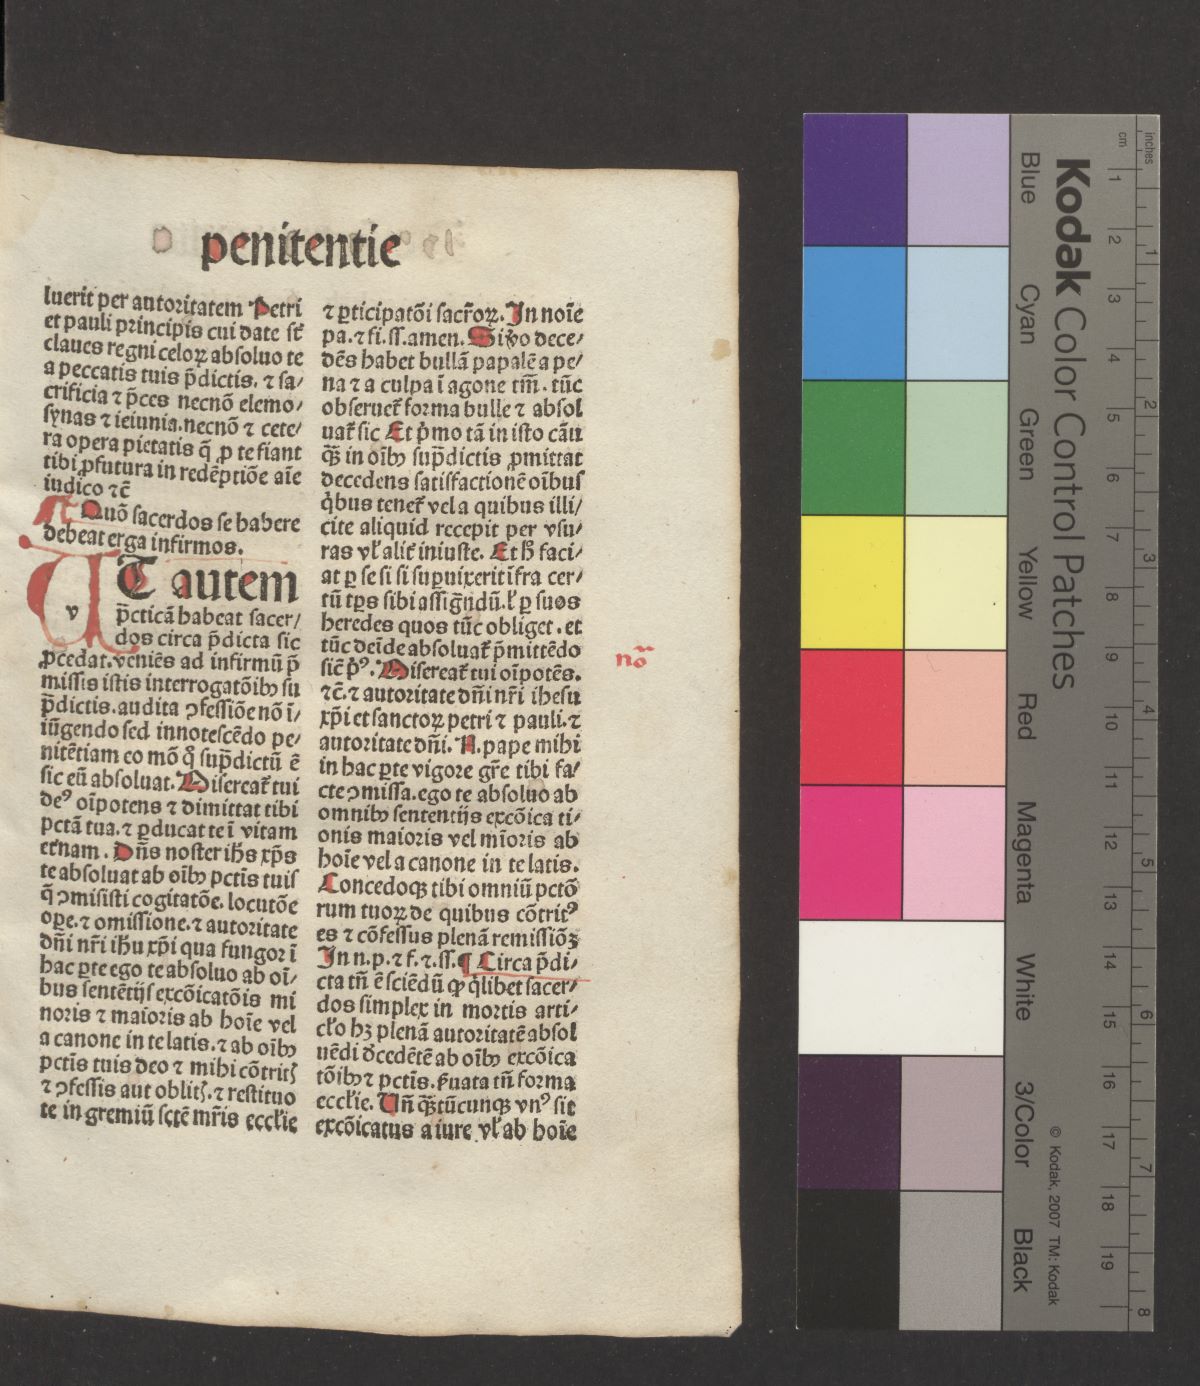 penitentie
luerit per autoritatem Petri
et pauli principis cui date st̄
claues regni celoꝝ absoluo te
a peccatis tuis p̄dictis. ⁊ sa/
crificia ⁊ p̄ces necnō elemo/
synas ⁊ ieiunia.necnō ⁊ cete/
ra opera pietatis q̄ ꝓ te fiant
tibi ꝓfutura in redēptiōe aīe
iudico ⁊c̄
Quō sacerdos se habere
debeat erga infirmos.
VT autem
p̄cticā habeat sacer/
dos circa p̄dicta sic
ꝓcedat.veniēs ad infirmū p̄
missis istis interrogatōibꝫ su
p̄dictis.audita ꝯfessiōe nō ī/
iūgendo sed innotescēdo pe/
nitētiam eo mō q̊ sup̄dictū ē
sic eū absoluat. Misereat᷑ tui
deꝰ oīpotens ⁊ dimittat tibi
pctā tua.⁊ ꝑducat te ī vitam
et᷑nam. Dn̄s noster ih̄s xp̄s
te absoluat ab oībꝫ pctīs tuis
q̄ ꝯmisisti cogitatōe. locutōe
oꝑe.⁊ omissione.⁊ autoritate
dn̄i nr̄i ih̄u xp̄i qua fungor ī
hac ꝑte ego te absoluo ab oī/
bus sentētijs excōicatōis mi
noris ⁊ maioris ab hoīe vel
a canone in te latis.⁊ ab oībꝫ
pctīs tuis deo ⁊ mihi cōtritꝭ
⁊ ꝯfessis aut oblitꝭ.⁊ restituo
te in gremiū sctē mr̄is eccl̄ie
⁊ ꝑticipatōi sacr̄oꝝ. In noīe
pa.⁊ fi.ss.amen. Si v̊o dece/
dēs habet bullā papalē a pe/
na ⁊ a culpa ī agone tm̄. tūc
obseruet᷑ forma bulle ⁊ absol
uat᷑ sic Et p̍mo tā in isto cāu
qꝫ̄ in oībꝫ sup̄dictis ꝓmittat
decedens satisfactionē oībus
q̍bus tenet᷑ vel a quibus illi/
cite aliquid recepit per vsu/
ras vl̄ alit᷑ iniuste. Et h̄ faci/
at ꝑ se si si supuixerit īfra cer/
tū tp̄s sibi assiḡndū.l̄ ꝑ suos
heredes quos tūc obliget. et
tūc deīde absoluat᷑ p̄mittēdo
sic̄ p̍ꝰ. Misereat᷑ tui oīpotēs.
⁊c̄.⁊ autoritate dn̄i nr̄i ihesu
xp̄i et sanctoꝝ petri ⁊ pauli.⁊
autoritate dn̄i. N. pape mihi
in hac ꝑte vigore gr̄e tibi fa/
cte ꝯmissa.ego te absoluo ab
omnibꝫ sententijs excōica ti/
onis maioris vel mīoris ab
hoīe vel a canone in te latis.
Concedoqꝫ tibi omniū pctō
rum tuoꝝ de quibus cōtritꝰ
es ⁊ cōfessus plenā remissiōꝫ
In n.p.⁊ f.⁊.ss. ¶ Circa p̄di/
cta tn̄ ē sciēdū ꝙ q̍libet sacer/
dos simplex in mortis arti/
cl̄o hꝫ plenā autoritatē absol
uēdi d̄cedētē ab oībꝫ excōica
tōibꝫ ⁊ pctīs. ẜuata tn̄ forma
eccl̄ie. Vn̄ qꝫ̄tūcunqꝫ vnꝰ sit
excōicatus a iure vl̄ ab hoīe
nō
Kodak Color Control Patches
Blue
Cyan
Green
Yellow
Red
Magenta
White
3/Color
Black
© Kodak, 2007 TM: Kodak
cm 1 2 3 4 5 6 7 8 9 10 11 12 13 14 15 16 17 18 19
inches 1 2 3 4 5 6 7 8